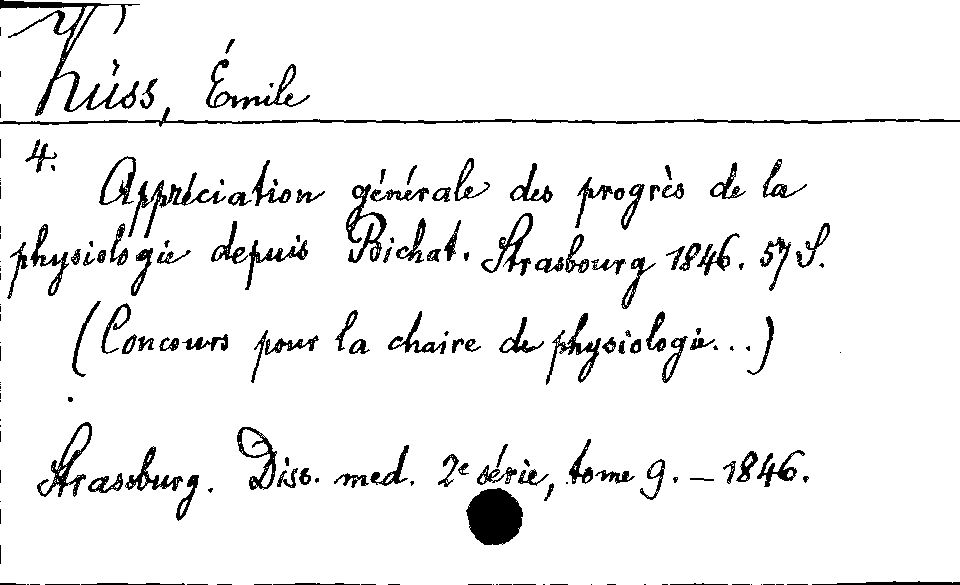 Küss, Émile
4.
Appréciation générale des progrès de la
physiologie depuis Bichat. Strasbourg 1846. 57 S.
(Concours pour la chaire de physiologie...)
Strassburg. Diss. med. 2e série, tome 9. – 1846.